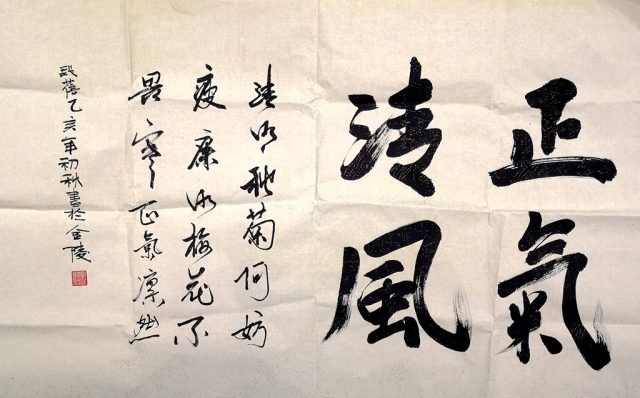 正氣
清風
清似秋菊何妨
瘦廉似梅花不
畏寒正氣凛然
段蓓乙亥年初秋書於金陵